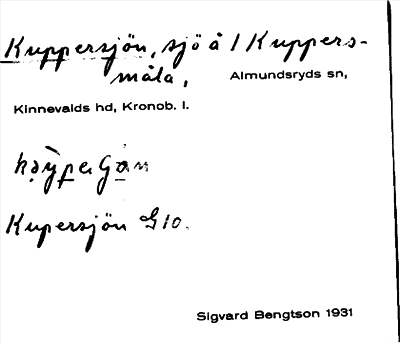 Kuppersjön, sjö å 1 Kuppers-
måla, Almundsryds sn,
Kinnevalds hd, Kronob. l.
Kupersjön G 10.
Sigvard Bengtson 1931